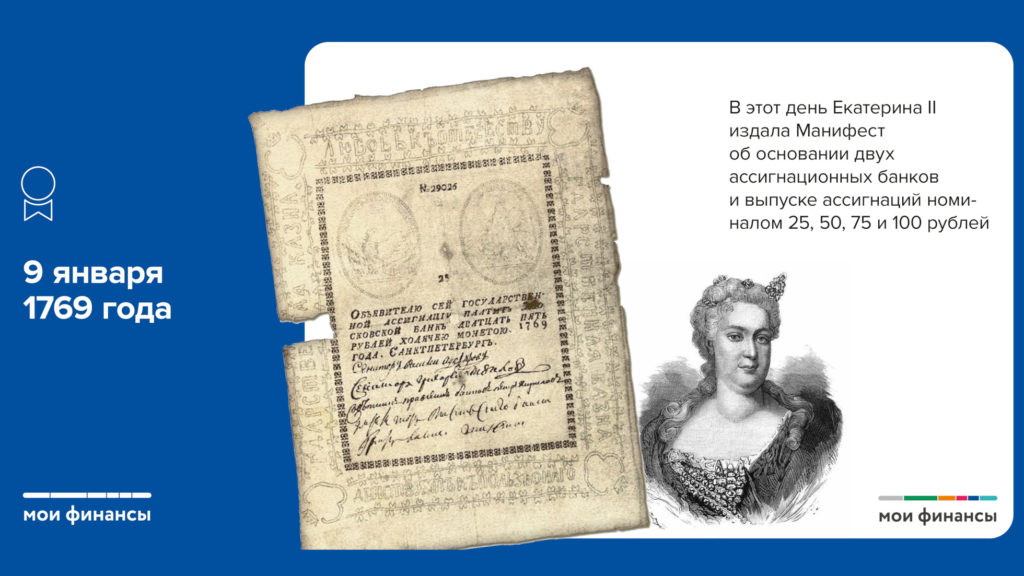 9 января
1769 года
мои финансы
ЛЮБОВЬ КЪ ОТЕЧЕСТВУ
N. 29026
25
ОБЪЯВИТЕЛЮ СЕЙ ГОСУДАРСТВЕН-
НОЙ АССИГНАЦІИ ПЛАТИТЪ
СКОВСКОЙ БАНКЪ ДВАТЦАТЬ ПЯТЬ
РУБЛЕЙ ХОДЯЧЕЮ МОНЕТОЮ. 1769
ГОДА. САНКТПЕТЕРБУРГЪ.
В этот день Екатерина II
издала Манифест
об основании двух
ассигнационных банков
и выпуске ассигнаций номи-
налом 25, 50, 75 и 100 рублей
мои финансы